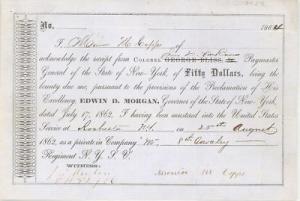 No.
I of
acknowledge the receipt from COLONEL GEORGE BLISS, Jr. Paymaster
General of the State of New-York, of Fifty Dollars, being the
bounty due me, pursuant to the provisions of the Proclamation of His
Excellency EDWIN D. MORGAN, Governor of the State of New-York,
dated July 17, 1862, I having been mustered into the United States
Service at Rochester N.Y. on 25th August
1862, as a private in Company "M", 8th Cavalry
Regiment N. Y. S. V.
WITNESS: